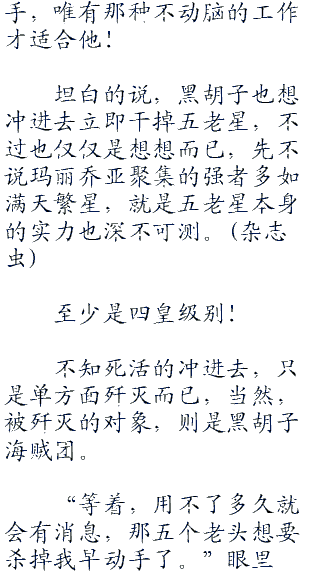 手，唯有那种不动脑的工作
才适合他！
坦白的说，黑胡子也想
冲进去立即干掉五老星，不
过也仅仅是想想而已，先不
说玛丽乔亚聚集的强者多如
满天繁星，就是五老星本身
的实力也深不可测。(杂志
虫)
至少是四皇级别！
不知死活的冲进去，只
是单方面歼灭而已，当然，
被歼灭的对象，则是黑胡子
海贼团。
“等着，用不了多久就
会有消息，那五个老头想要
杀掉我早动手了。”眼里